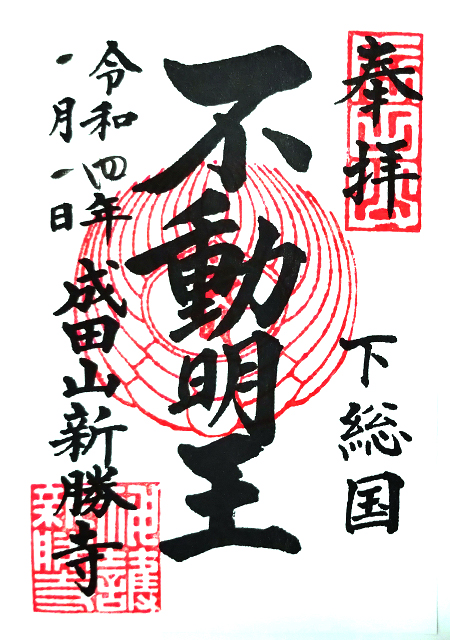 奉拝
下総国
不動明王
令和四年
一月一日
成田山新勝寺